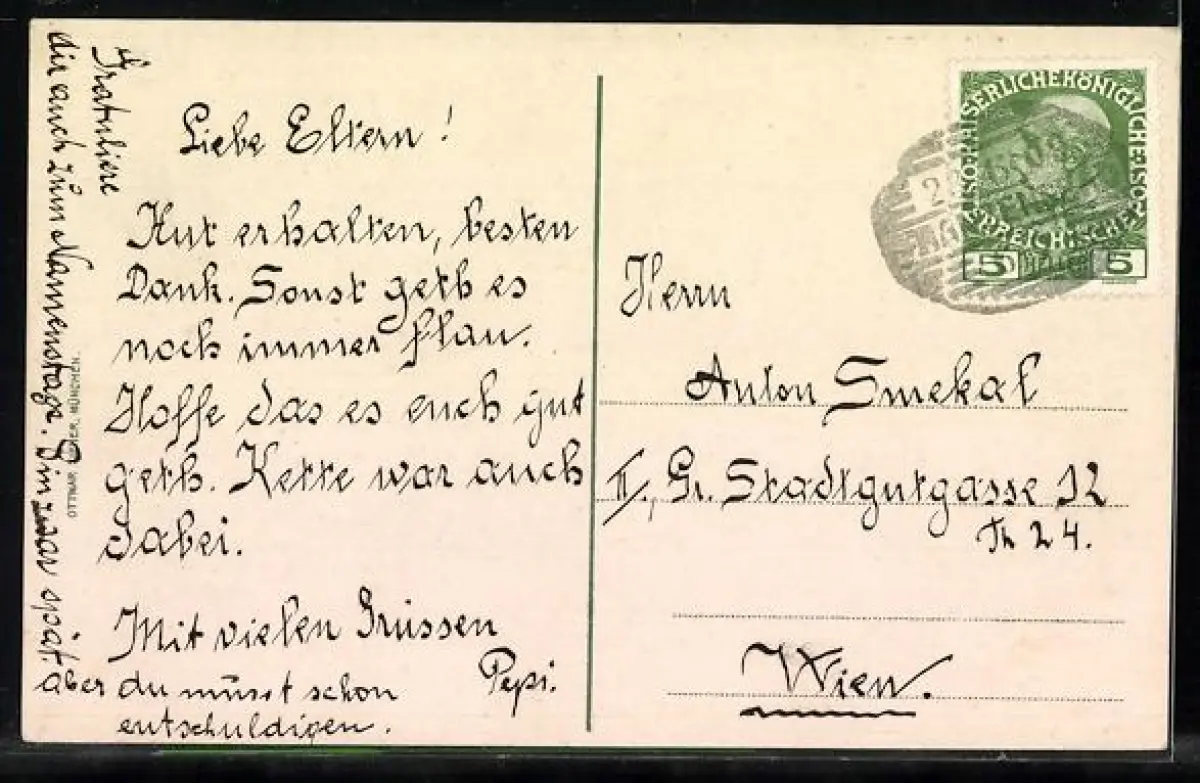 Liebe Eltern!
Hut erhalten, besten
Dank. Sonst geth es
noch immer flau.
Hoffe das es euch gut
geth. Kette war auch
dabei.
Mit vielen Grüssen
Pepi.
Gratuliere
dir auch zum Namenstage. Bin zwar spät.
aber du müsst schon
entschuldigen.
OTTMAR ZIEHER, MÜNCHEN.
KAISERLICHE KÖNIGLICHE ÖSTERREICHISCHE POST
5 5
Herrn
Anton Smekal
II., Gr. Stadtgutgasse 12
Th 24.
Wien.